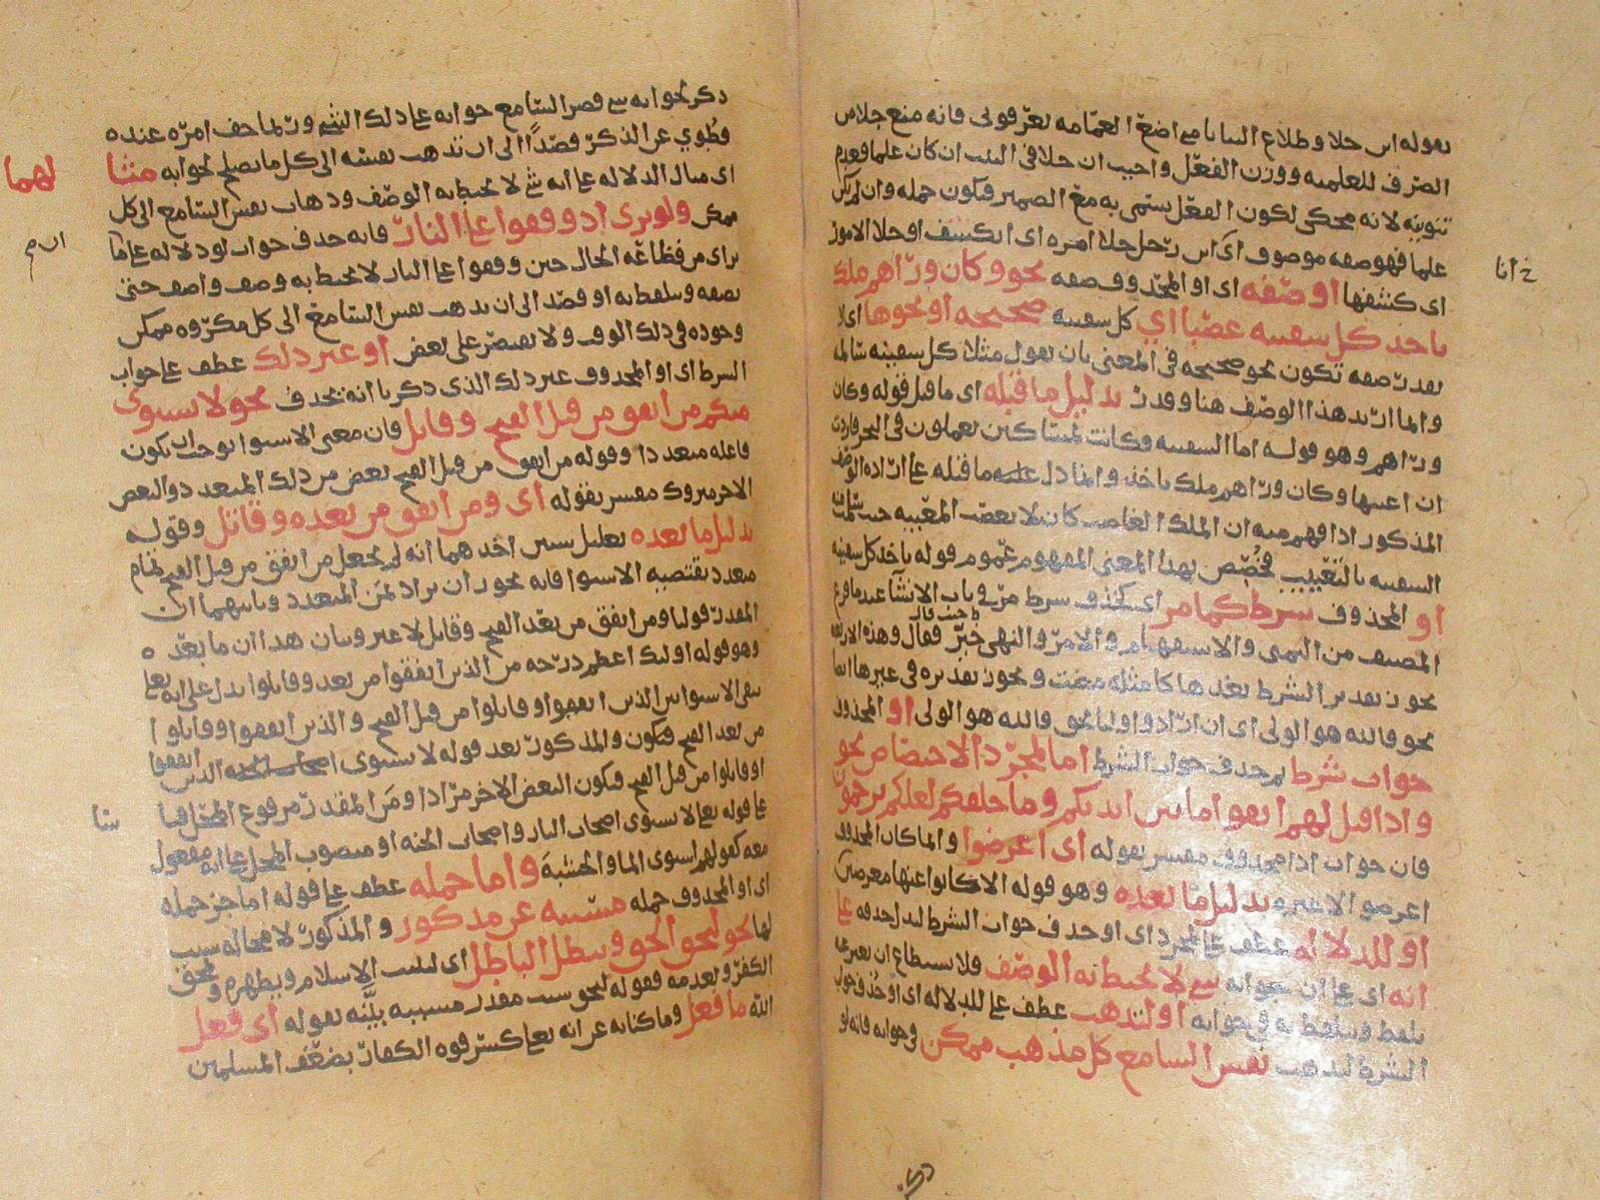 بقوله انا ابن جلا وطلاع الثنايا متى اضع العمامه تعرفوني فانه منع جلا من
الصرف للعلميه ووزن الفعل واجيب ان جلا في البيت ان كان علما فعدم
تنوينه لانه محكي لكون الفعل سمي به مع الضمير فيكون جمله وان لم يكن
علما فهو صفه موصوف اي انا ابن رجل جلا امره اي انكشف او جلا الامور
اي كشفها او صفه اي او المحذوف صفه نحو وكان وراهم ملك
ياخذ كل سفينه غصبا اي كل سفينه صحيحه او نحوها اي لا
بقدر صفه تكون نحو صحيحه في المعنى بان يقول مثلا كل سفينه سالمه
وانما اريد هذا الوصف هنا وقدر بدليل ما قبله اي ما قبل قوله وكان
وراهم وهو قوله اما السفينه فكانت لمساكين يعملون في البحر فاردت
ان اعيبها وكان وراهم ملك ياخذ وانما دل عليه ما قبله على اراده الوصف
المذكور اذا فهم منه ان الملك الغاصب كان لا يغصب المعيبه حيث سلمت
السفينه بالتعييب فخصص بهذا المعنى المفهوم عموم قوله ياخذ كل سفينه
او المحذوف شرط كما مر اي كحذف شرط مر في باب الانشا عند ما فرغ
المصنف من التمني والاستفهام والامر والنهي حيث قال وهذه الاربعه
يجوز تقدير الشرط بعدها كامثله مضت ويجوز تقديره في غيرها ايضا
نحو فالله هو الولي اي ان ارادوا وليا بحق فالله هو الولي او المحذوف
جواب شرط ثم حذف جواب الشرط اما لمجرد الاختصار نحو
واذا قيل لهم اتقوا ما بين ايديكم وما خلفكم لعلكم ترحمون
فان جواب اذا محذوف مفسر بقوله اي اعرضوا وانما كان المحذوف
اعرضوا لا غيره بدليل ما بعده وهو قوله الا كانوا عنها معرضين
او للدلاله عطف على لمجرد اي او حذف جواب الشرط لدلاله حذفه على
انه اي على ان جوابه شي لا يحيط به الوصف فلا يستطاع ان يعبر عنه
بلفظ ويتلفظ به في جوابه او لتذهب عطف على للدلاله اي او حذف جواب
الشرط لتذهب نفس السامع كل مذهب ممكن في جوابه فانه لو
انا
ذكر لجوابه شي قصر السامع جوابه على ذلك الشي وربما خف امره عنده
فطوي عن الذكر قصدا الى ان تذهب نفسه الى كل ما يصلح لجوابه مثالهما
اي مثال الدلاله على انه شي لا يحيط به الوصف وذهاب نفس السامع الى كل
ممكن ولو ترى اذ وقفوا على النار فانه حذف جواب لو دلاله على ما
يراى من فظاعه الحال حين وقفوا على النار لا يحيط به وصف واصف حتى
يصفه ويتلفظ به او قصد الى ان تذهب نفس السامع الى كل مكروه ممكن
وجوده في ذلك الوقت ولا يقتصر على بعض او غير ذلك عطف على جواب
الشرط اي او المحذوف غير ذلك الذي ذكر بانه يحذف نحو لا يستوى
منكم من انفق من قبل الفتح وقاتل فان معنى الاستوا يوجب ان يكون
فاعله متعددا وقوله من انفق من قبل الفتح بعض من ذلك المتعدد والبعض
الاخر متروك مفسر بقوله اي ومن انفق من بعده وقاتل وقوله
بدليل ما بعده تعليل شيين احدهما انه لم يجعل من انفق من قبل الفتح تمام
متعدد يقتضيه الاستوا فانه يجوز ان يراد بمن المتعدد وثانيهما ان
المقدر قولنا ومن انفق من بعد الفتح وقاتل لا غير وبيان هذا ان ما بعده
وهو قوله اوليك اعظم درجه من الذين انفقوا من بعد وقاتلوا يدل على انه تعالى
نفى الاستوا بين الذين انفقوا وقاتلوا من قبل الفتح والذين انفقوا وقاتلوا
من بعد الفتح فيكون المذكور بعد قوله لا يستوى الذين انفقوا
وقاتلوا من قبل الفتح فيكون البعض الاخر مرادا ومن المقدر مرفوع المحل
على قوله تعالى لا يستوى اصحاب النار واصحاب الجنه او منصوب المحل على انه مفعول
معه كقولهم استوى الما والخشبه واما جمله عطف على قوله اما جز جمله
اي او المحذوف جمله مسببه عن مذكور والمذكور لا محاله سبب
لها نحو ليحق الحق ويبطل الباطل اي ليثبت الاسلام ويظهره ويمحق
الكفر ويعدمه فقوله ليحق سبب مقدر مسببه بينه بقوله اي فعل
الله ما فعل وما كنايه عن انه تعالى كسر قوه الكفار بضعف المسلمين